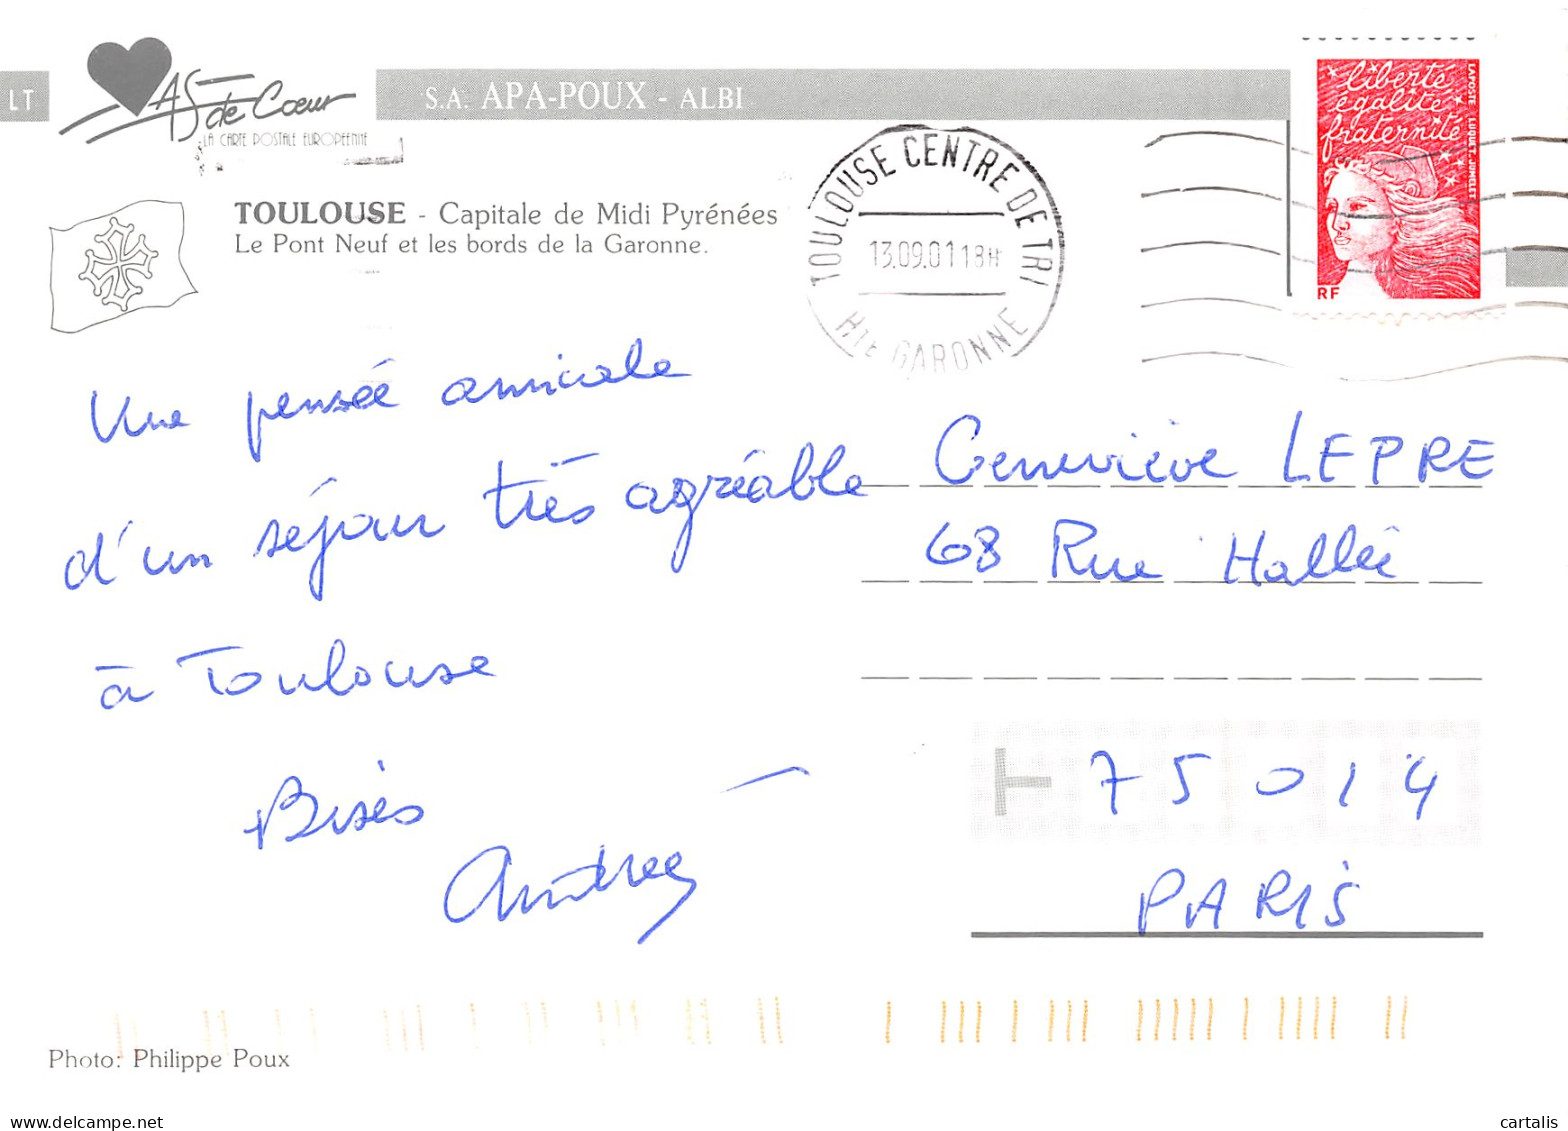 LT
AS de Cœur
LA CARTE POSTALE EUROPÉENNE
S.A. APA-POUX - ALBI
liberté
égalité
fraternité
LA POSTE LUQUET-JUMELET
RF
TOULOUSE CENTRE DE TRI
13.09.01 18H
HTE GARONNE
TOULOUSE - Capitale de Midi Pyrénées
Le Pont Neuf et les bords de la Garonne.
Une pensée amicale
d'un séjour très agréable
à Toulouse
Bises
Andrée
Geneviève LEPRE
68 Rue Hallé
75014
PARIS
Photo: Philippe Poux
cartalis